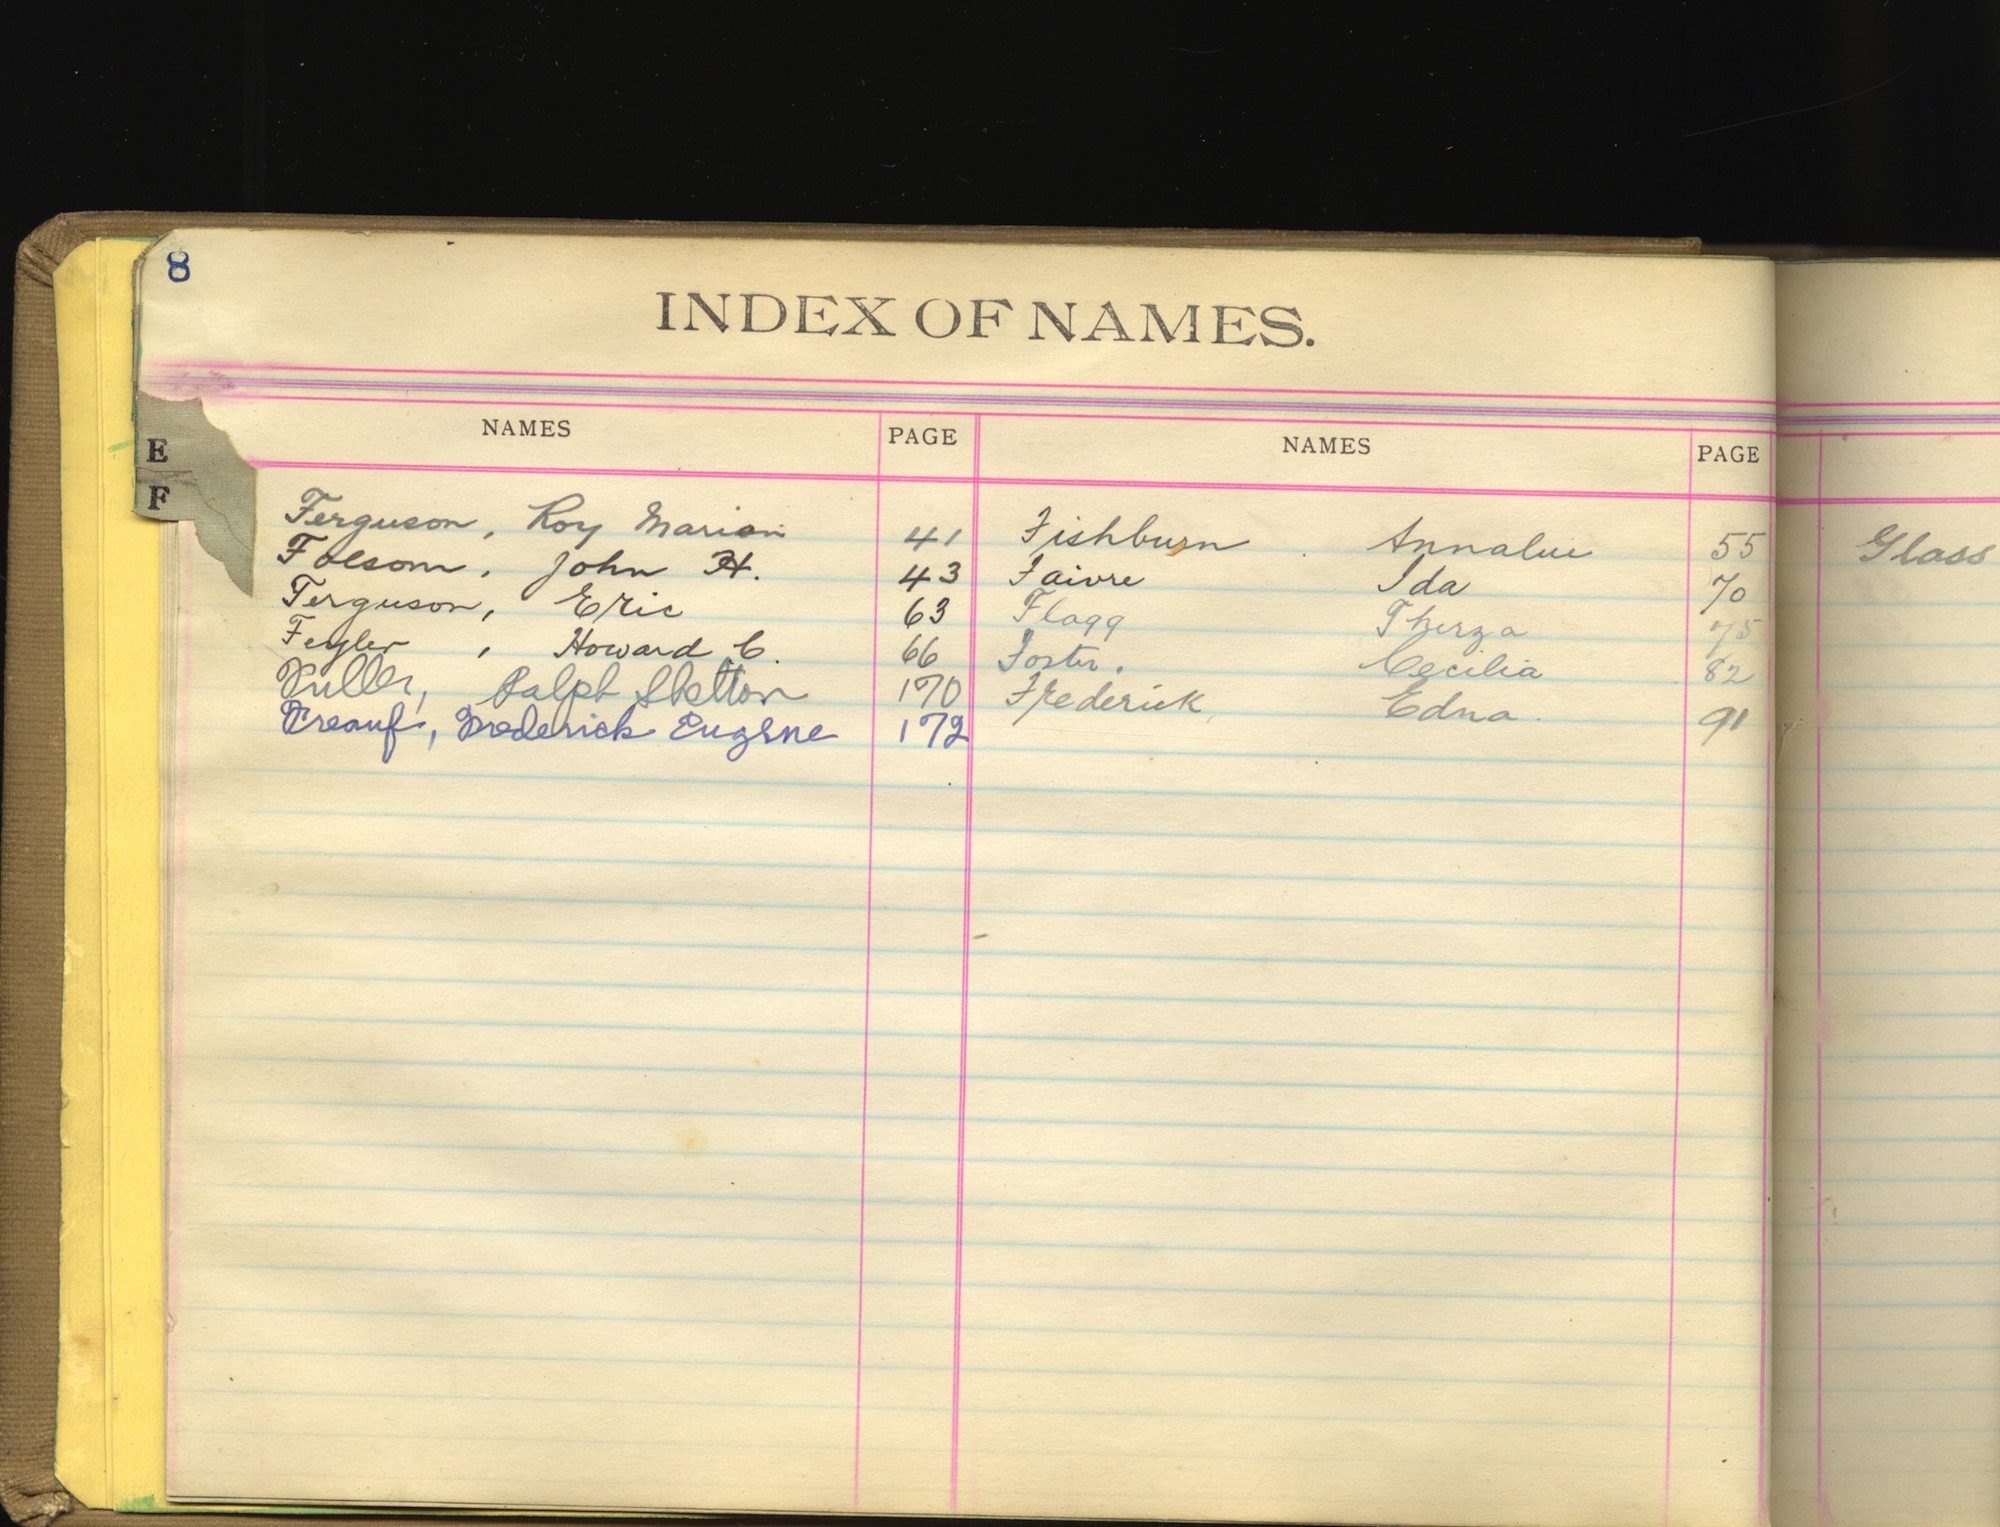 8
INDEX OF NAMES.
E
F
NAMES PAGE NAMES PAGE
Ferguson, Roy Marion 41 Fishburn . Annalue 55 Glass
Folsom, John H. 43 Faivre Ida 70
Ferguson, Eric 63 Flagg Thirza 75
Fegler, Howard C. 66 Foster. Cecilia 82
Fuller, Ralph Skelton 170 Frederick, Edna. 91
Freauf, Frederick Eugene 172